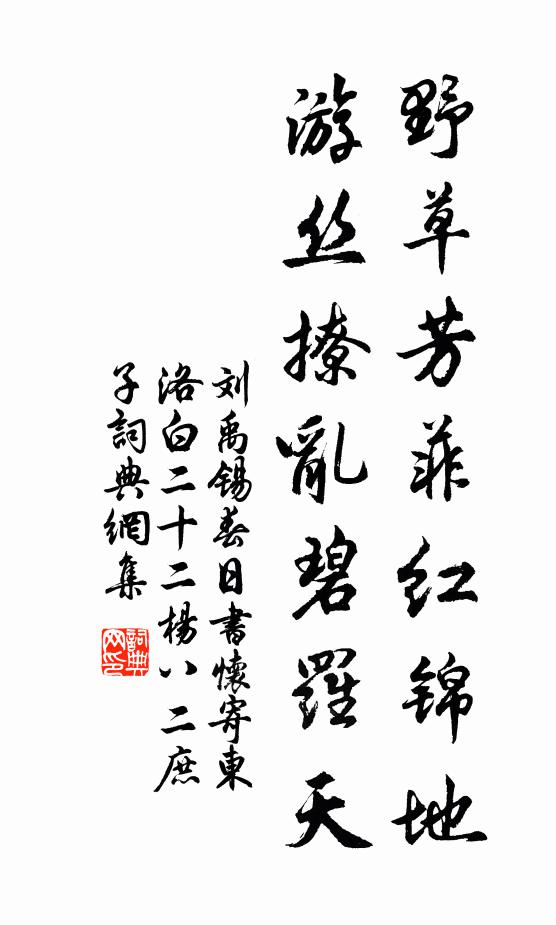 野草芳菲红锦地
游丝撩亂碧羅天
刘禹锡春日書懷寄東
洛白二十二楊八二庶
子詞典網集
詞典
网印